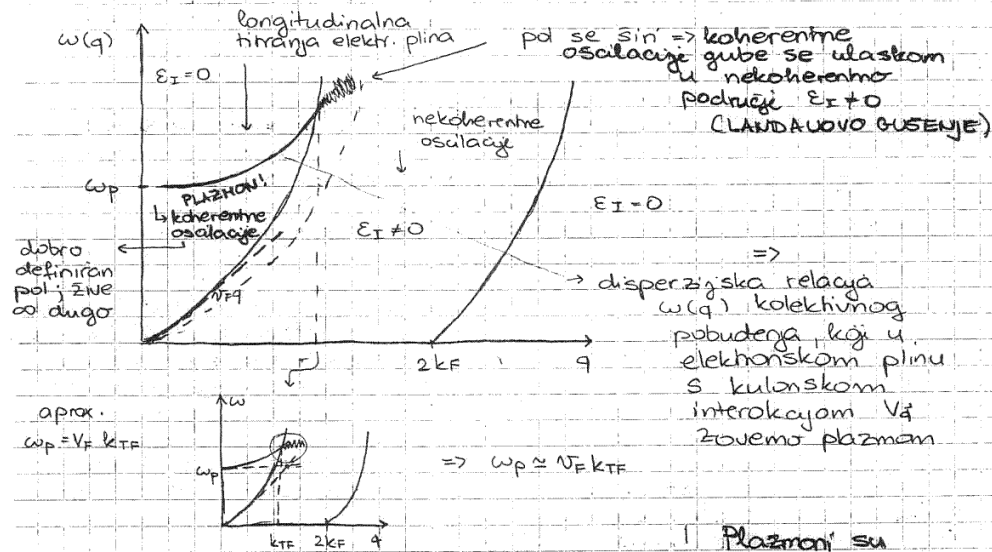 ω(q)
longitudinalna
titranja elektr. plina
ε_I = 0
pol se širi => koherentne
oscilacije gube se ulaskom
u nekoherentno
područje ε_I ≠ 0
(LANDAUOVO GUŠENJE)
nekoherentne
oscilacije
ωp
PLAZMON!
↳ koherentne
oscilacije
ε_I ≠ 0
ε_I = 0
dobro
definiran
pol; žive
∞ dugo
v_F q
=>
→ disperzijska relacija
ω(q) kolektivnog
pobuđenja, koji u
elektronskom plinu
s kulonskom
interakcijom V_q
zovemo plazmon
2k_F
q
aprox.
ωp = v_F k_TF
ω
ωp
k_TF
2k_F
q
=> ωp ≃ v_F k_TF
! Plazmoni su